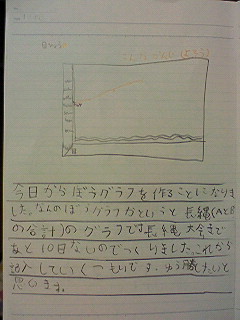 今日からぼうグラフを作ることになりま
した。なんのぼうグラフかというと長縄(AとB
の合計)のグラフです。長縄大会まで
あと10日ないのでつくりました。これから
記入していくつもりです。ゆう勝したいと
思います。